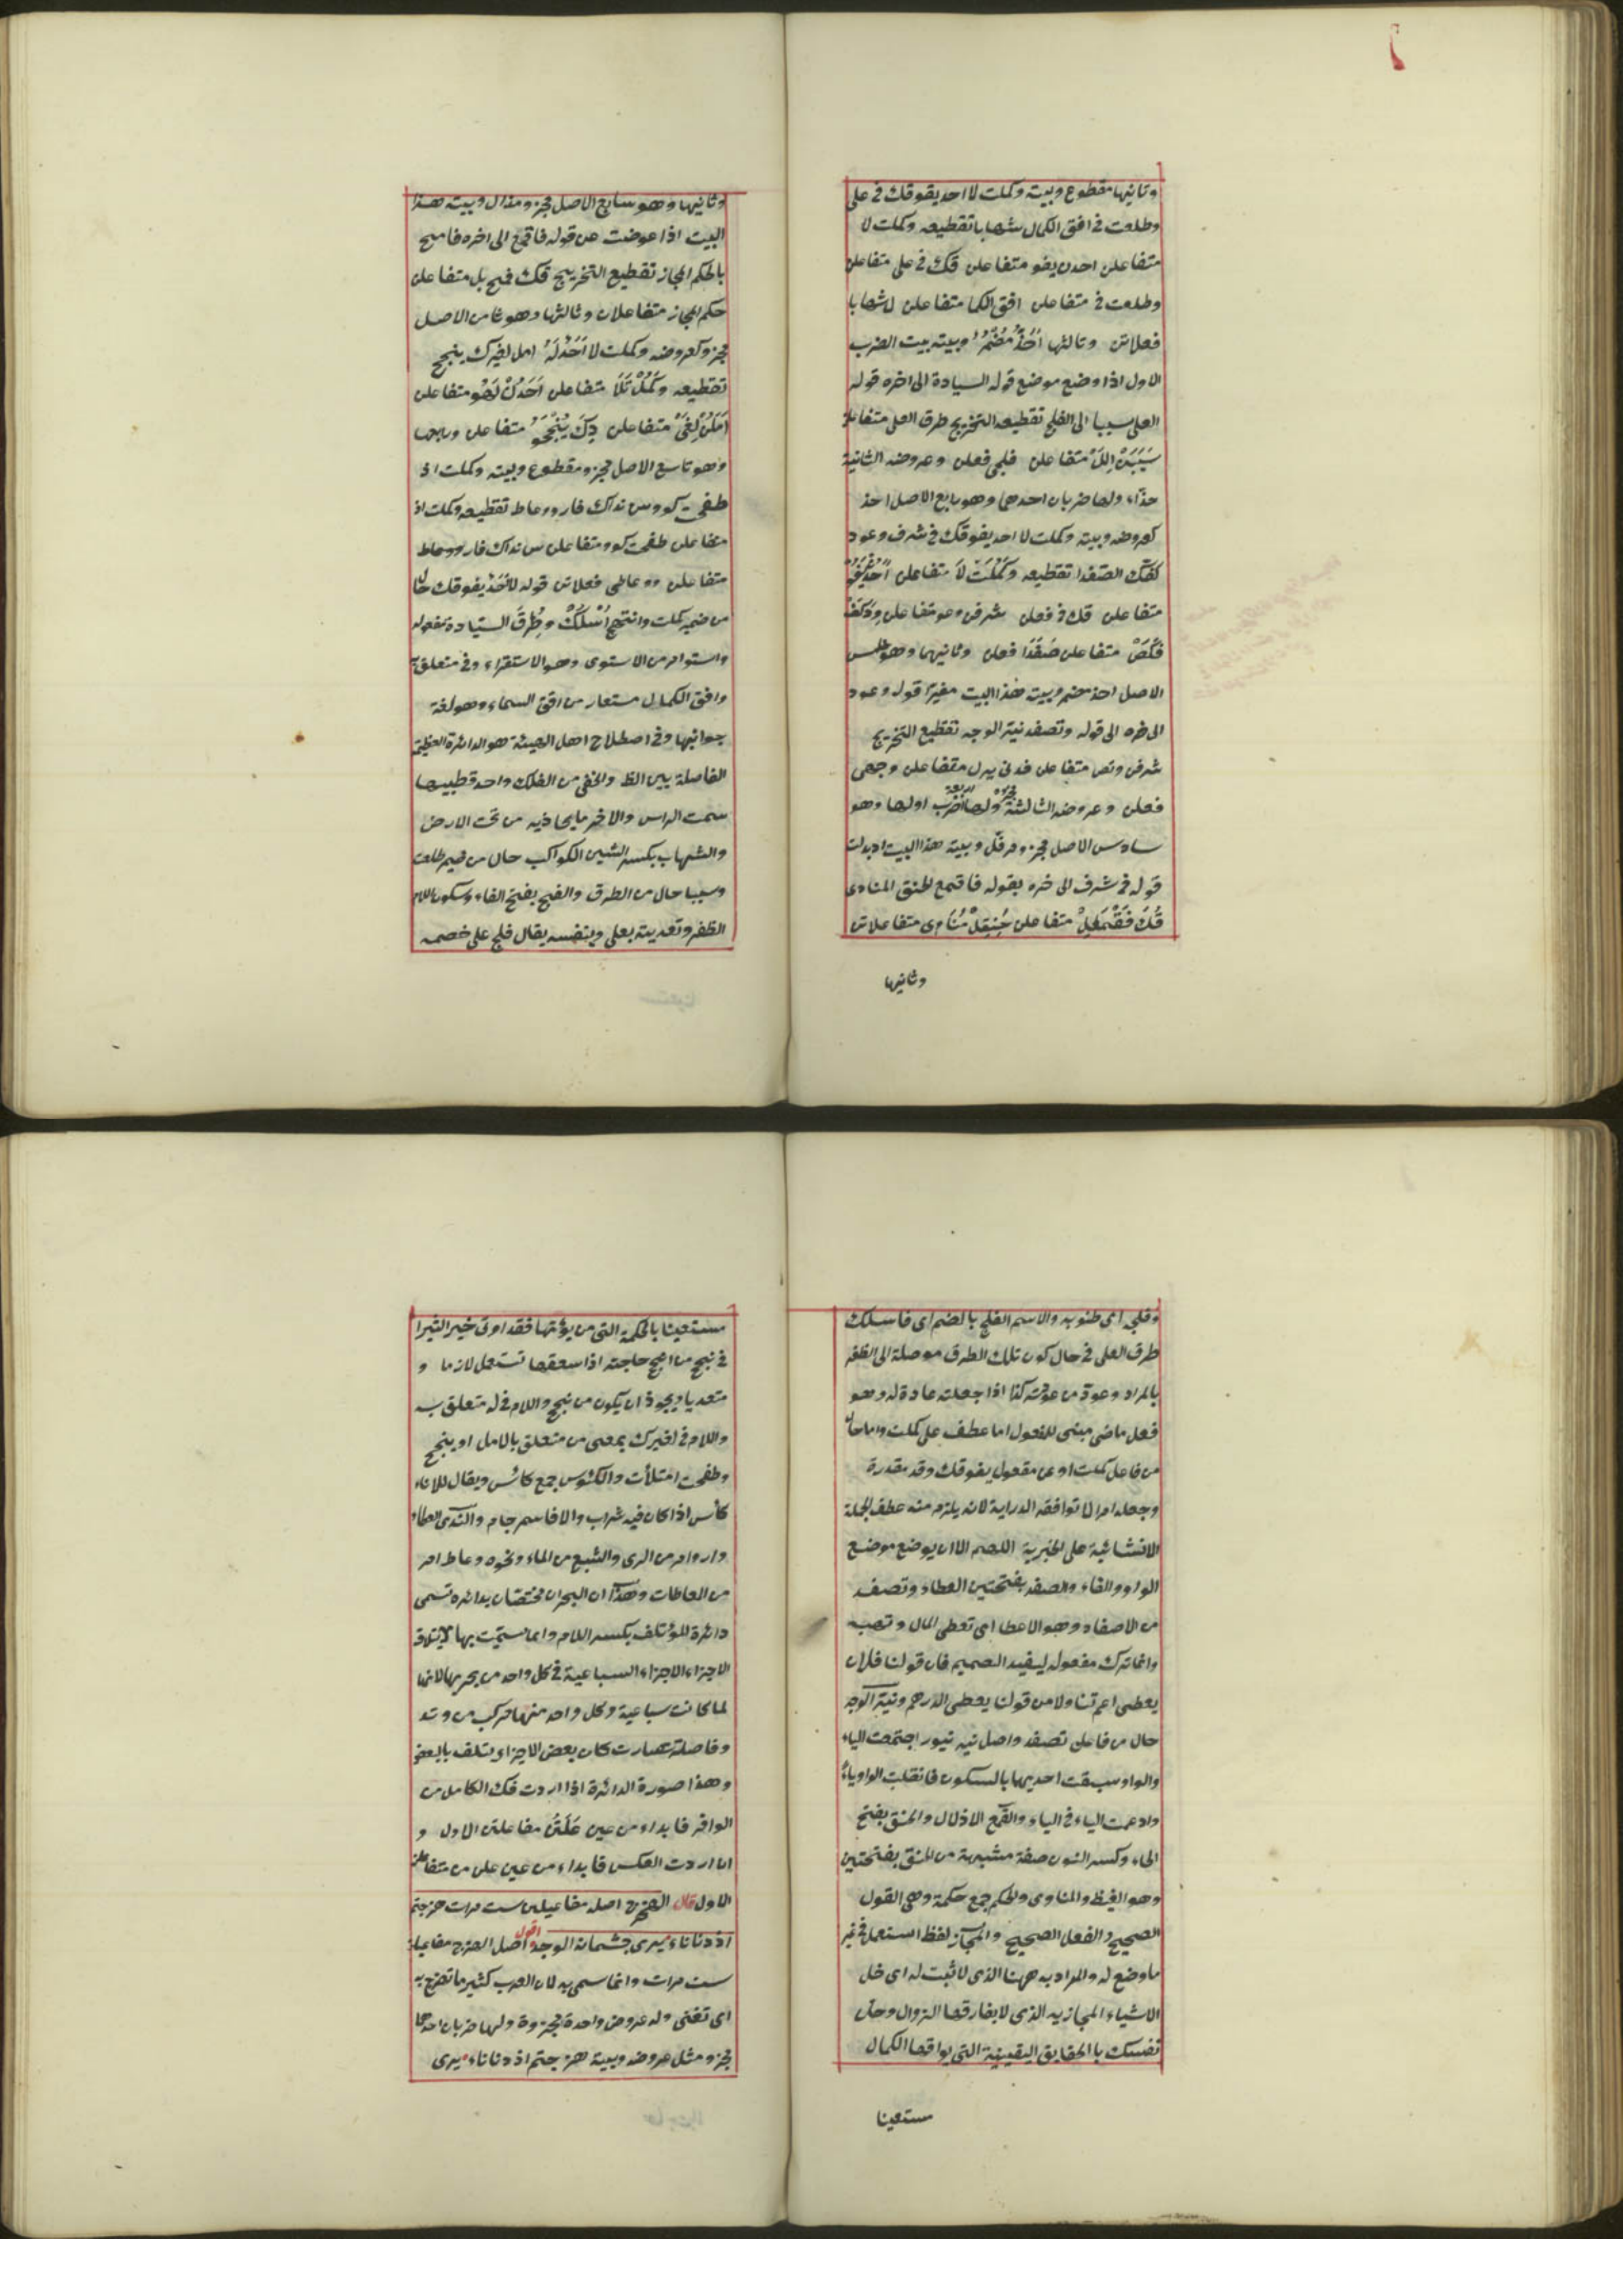 وثانيها مقطوع وبيته وكملت لا احد يفوقك في على
وطلعت في افق الكمال شهابا تقطيعه وكملت لا
متفاعلن احدن يفو متفاعلن قك في على متفاعلن
وطلعت في متفاعلن افق الكما متفاعلن ل شهابا
فعلاتن وثالثها أحذ مضمر وبيته بيت الضرب
الاول اذا وضع موضع قوله السيادة الى اخره قوله
العلى سببا الى الفلج تقطيعه التخريج طرق العلى متفاعلن
سببن الل متفاعلن فلجي فعلن وعروضه الثانية
حذاء ولها ضربان احدهما وهو رابع الاصل احذ
كعروضه وبيته وكملت لا احد يفوقك في شرف وعود
كفك الصفدا تقطيعه وكملت لا متفاعلن احدن يفو
متفاعلن قك في فعلن شرفن وعو متفاعلن ود كف
فكص متفاعلن صفدا فعلن وثانيهما وهو خامس
الاصل احذ مضمر وبيته هذا البيت مغيرا قوله وعود
الى خره الى قوله وتصفد نية الوجه تقطيع التخريج
شرفن وتص متفاعلن فدني يرل متفاعلن وجهي
فعلن وعروضه الثالثة مجزوة ولها اربعة اضرب اولها وهو
سادس الاصل مجزو مرفل وبيته هذا البيت اذ بدلت
قوله في شرف الى خره بقوله فاقمع لحنق المناوى
قك فقمع ل متفاعلن حنقل مناوى متفاعلاتن
وثانيها
وثانيها وهو سابع الاصل مجزو مذال وبيته هذا
البيت اذا عوضت عن قوله فاقمع الى اخره فامح
بالحكم المجاز تقطيع التخريج قك فمح بل متفاعلن
حكم المجاز متفاعلان وثالثها وهو ثامن الاصل
مجزو كعروضه وكملت لا احد له امل لغيرك ينجح
تقطيعه وكملت لا متفاعلن احدن لهو متفاعلن
املن لغي متفاعلن رك ينجحو متفاعلن ورابعها
وهو تاسع الاصل مجزو مقطوع وبيته وكملت اذ
طفحت كووس نداك فارو وعاط تقطيعه وكملت اذ
متفاعلن طفحت كوو متفاعلن س نداك فارو وعاط
متفاعلن ووعاطى فعلاتن قوله لا احد يفوقك حال
من ضمير كملت وانتهج اسلك وطرق السيادة مفعوله
واستو امر من الاستوى وهو الاستقراء وفي متعلق به
وافق الكمال مستعار من افق السماء وهو لغة
جوانبها وفي اصطلاح اهل الهيئة هو الدائرة العظيمة
الفاصلة بين الظ والخفى من الفلك واحد قطبيها
سمت الراس والاخر ما يحاذيه من تحت الارض
والشهاب بكسر الشين الكواكب حال من ضمير طلعت
وسببا حال من الطرق والفلج بفتح الفاء وسكون اللام
الظفر وتعديته بعلى وبنفسه يقال فلج على خصمه
وفلجى اى ظنوبه والاسم الفلج بالضم اى فاسلك
طرق العلى في حال كون تلك الطرق موصلة الى الظفر
بالمراد وعود من عودته كذا اذا جعلته عادة له وهو
فعل ماضى مبنى للمفعول اما عطف على كملت واما حال
من فاعل كملت او عن مفعول يفوقك وقد مقدرة
وجعله امرا لا توافقه الدراية لانه يلزم منه عطف الجملة
الانشائية على الخبرية اللهم الا ان يوضع موضع
الواو والفاء والصفد بفتحتين العطاء وتصفد
من الاصفاد وهو الاعطا اى تعطى المال وتهب
وانما ترك مفعوله ليفيد الصميم فان قولنا فلان
يعطى اعم تناولا من قولنا يعطى الدرهم ونية الوجه
حال من فاعلن تصفد واصل نيه نيور اجتمعت الياء
والواو سبقت احديهما بالسكون فانقلبت الواو ياء
وادغمت الياء في الياء والقمع الاذلال والحنق بفتح
الحاء وكسر النون صفة مشبهة من الحنق بفتحتين
وهو الغيظ والمناوى والحكم جمع حكمة وهي القول
الصحيح والفعل الصحيح والمجاز لفظ استعمل في غير
ما وضع له والمراد به ههنا الذى لا ثبت له اى خل
الاشياء المجازيه الذى لا يفارقها الزوال وحل
نفسك با الحقايق اليقينية التي يواقها الكمال
مستعينا
مستعينا بالحكمة التي من يؤتها فقد اوتى خيرا كثيرا
في نجح من انجح حاجته اذا سعقها تستعمل لازما و
متعديا ويجوز ان يكون من نجح واللام في له متعلق به
واللام في لغيرك بمعنى من متعلق بالامل او ينجح
وطفحت امتلأت والكئوس جمع كائس ويقال للاناء
كأس اذا كان فيه شراب والا فاسم جام والندى العطاء
وارو امر من الرى والشبع من الماء ونحوه وعاط امر
من العاطات وهذا ان البحران مختصان بدائرة تسمى
دائرة المؤتلف بكسر اللام وانما سميت بها لايتلاف
الاجزاء الاجزاء السباعية في كل واحد من بحريها لانها
لما كانت سباعية وكل واحد منها مركب من وتد
وفاصلة صارت كان بعض الاجزاء يتلف بالبعض
وهذا صورة الدائرة اذا اردت فك الكامل من
الوافر فابداء من عين علتن مفاعلتن الاول و
ان اردت العكس فابداء من عين علن من متفاعلن
الاول قال الهزج اصله مفاعيلن ست مرات هزجتم
اذ دنا ناء يرى جثمانه الوجد اقول اصل الهزج مفاعيلن
ست مرات وانما سمى به لان العرب كثير ما تهزج به
اى تغنى وله عروض واحدة مجزوة ولها ضربان احدهما
مجزو مثل عروضه وبيته هزجتم اذ دنا ناء يرى